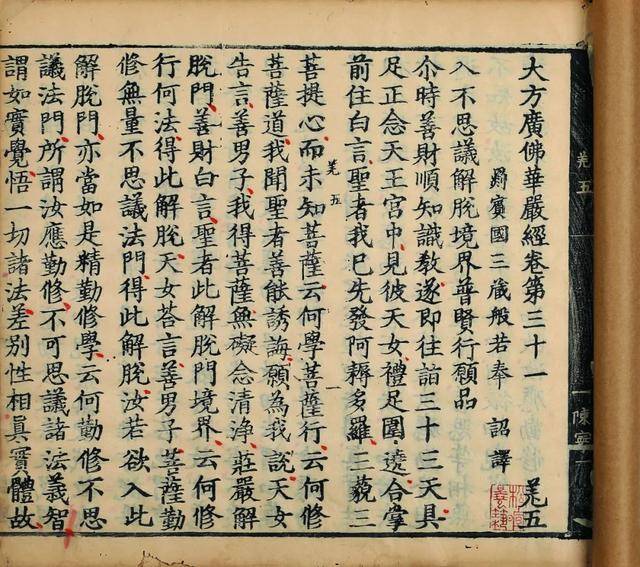 羌五
陳寧
大方廣佛華嚴經卷第三十一 羌五
罽賓國三藏般若奉 詔譯
入不思議解脫境界普賢行願品
尒時善財順知識教遂即往詣三十三天具
足正念天王宮中見彼天女禮足圍遶合掌
前住白言聖者我已先發阿耨多羅三藐三
羌五 一
菩提心而未知菩薩云何學菩薩行云何修
菩薩道我聞聖者善能誘誨願為我說天女
告言善男子我得菩薩無礙念清淨莊嚴解
脫門善財白言聖者此解脫門境界云何修
行何法得此解脫天女荅言善男子菩薩勤
修無量不思議法門得此解脫汝若欲入此
解脫門亦當如是精勤修學云何勤修不思
議法門所謂汝應勤修不可思議諸法義智
謂如實覺悟一切諸法差別性相真實體故